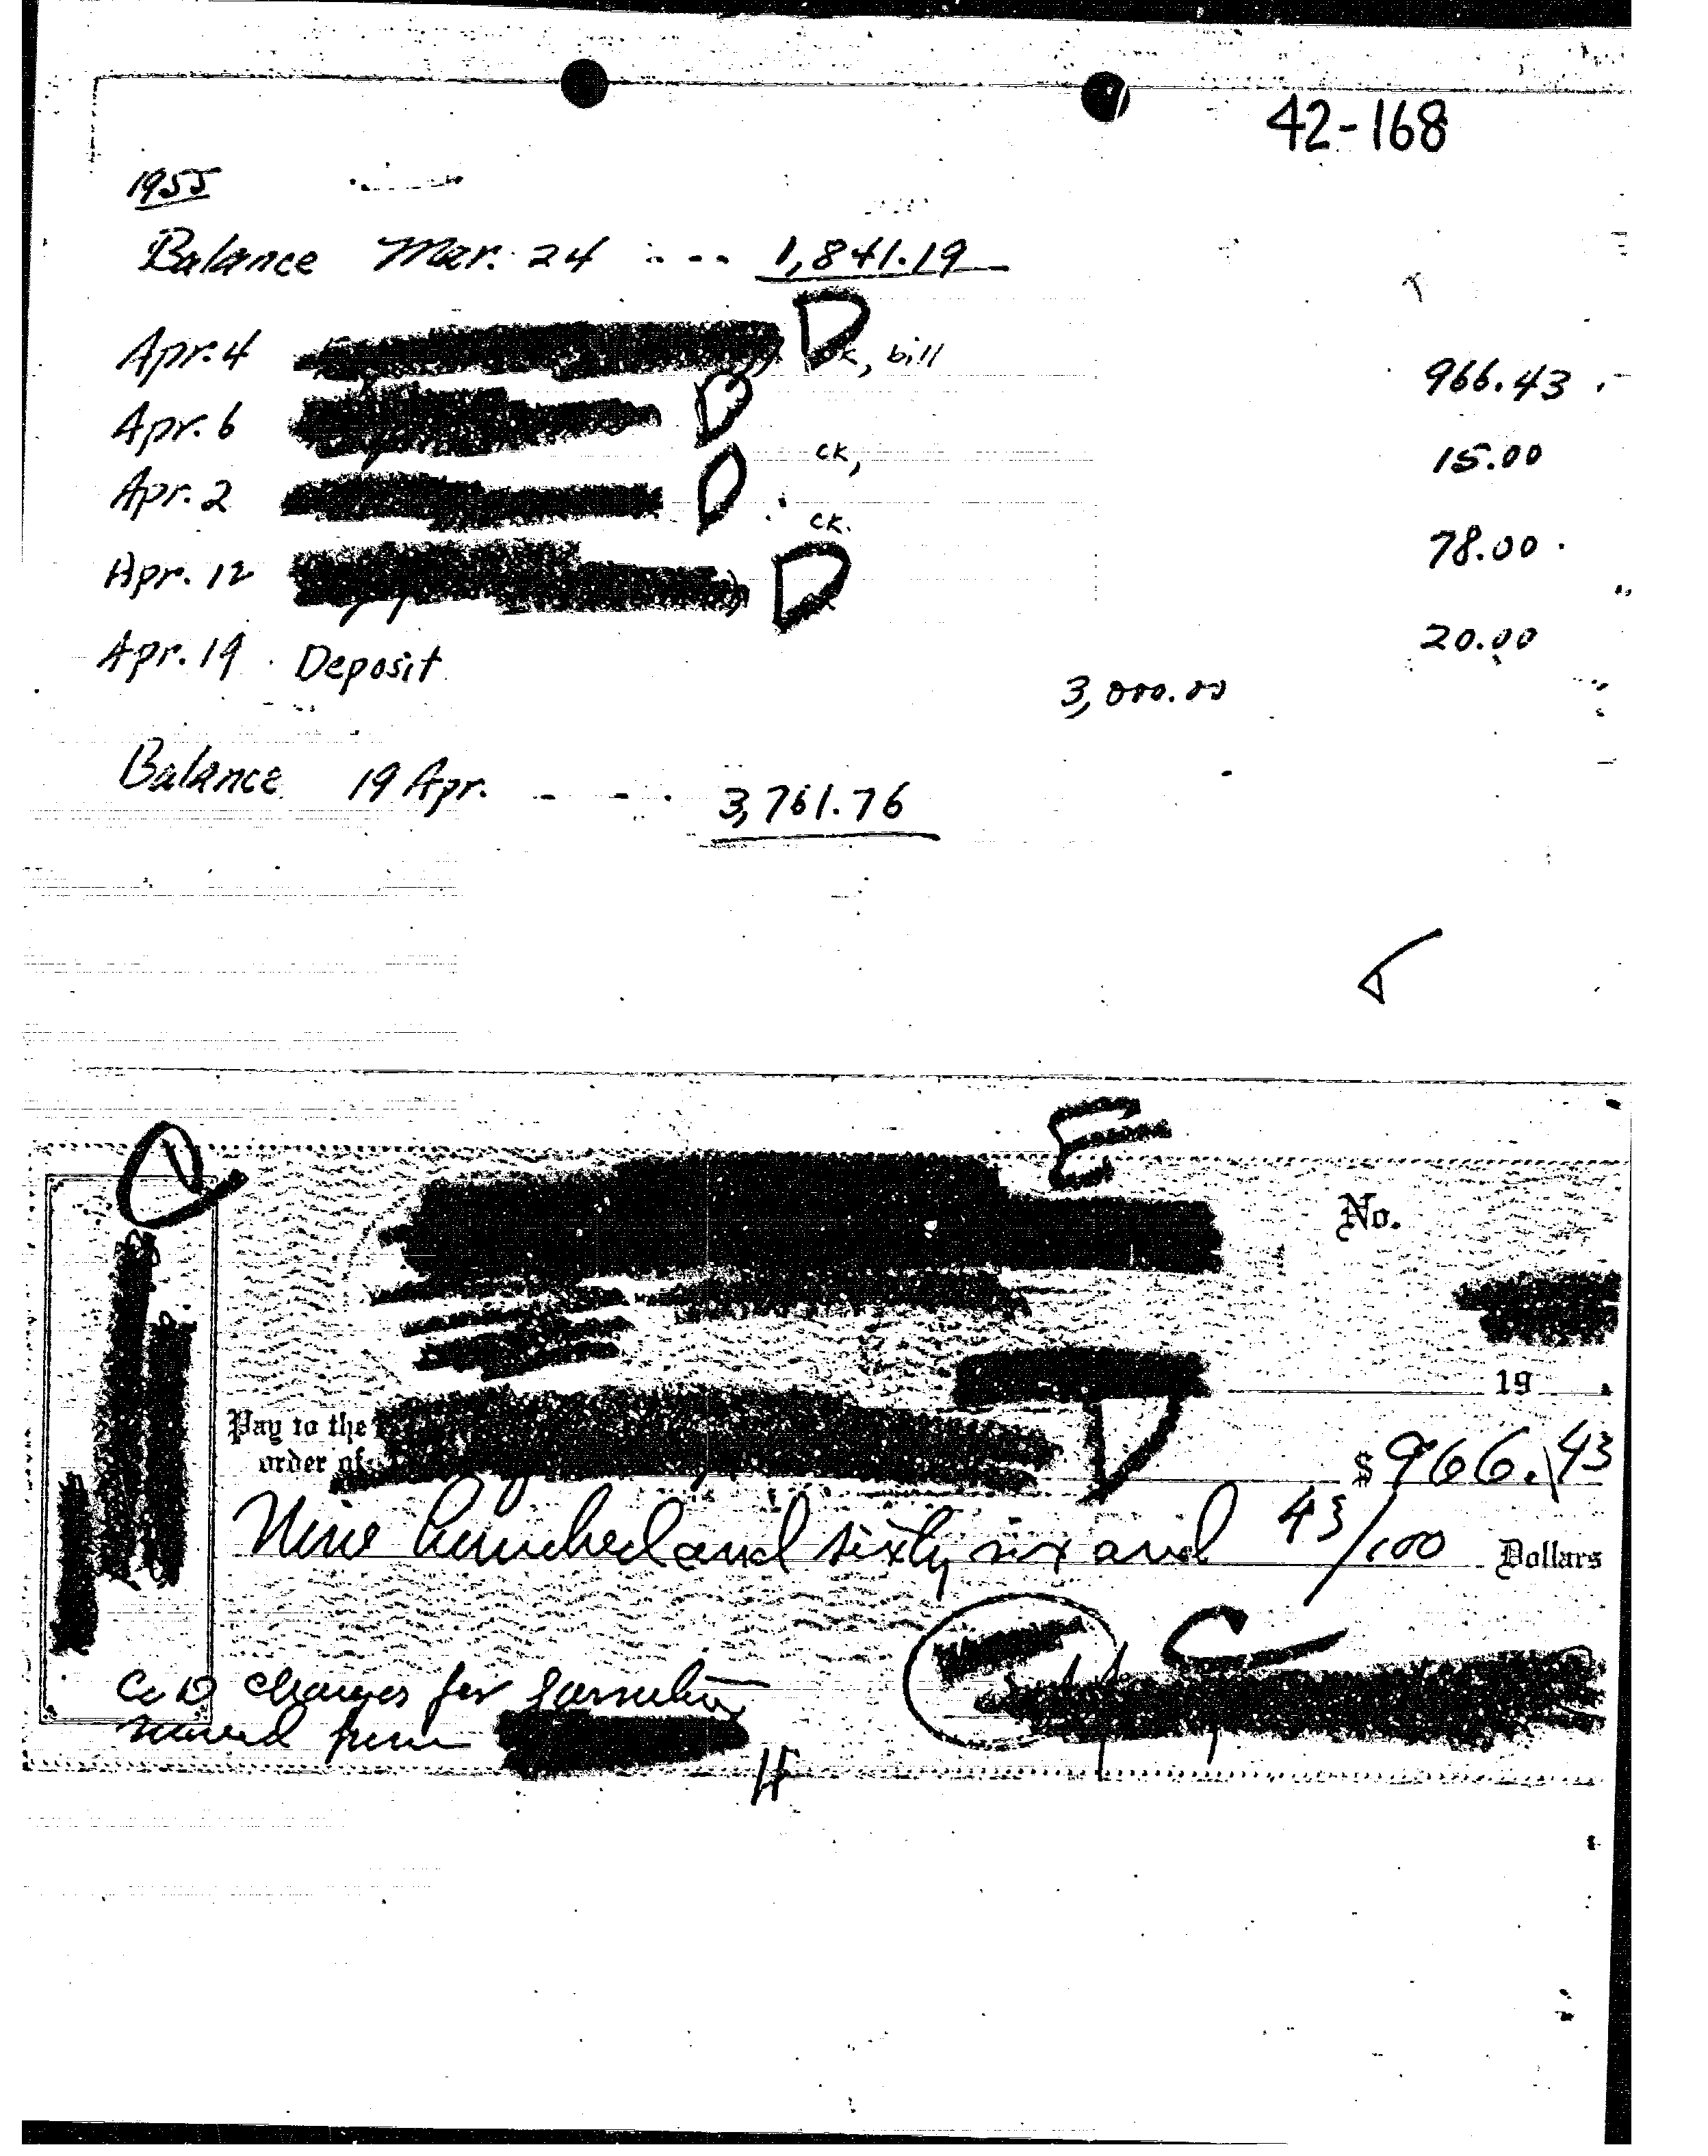 42-168
1955
Balance Mar. 24 - - - 1,841.19
Apr. 4 D ck, bill 966.43
Apr. 6 D ck, 15.00
Apr. 2 D ck. 78.00
Apr. 12 D 20.00
Apr. 19 Deposit 3,000.00
Balance 19 Apr. - - - 3,761.76
C
E
No.
19
Pay to the
order of
D
$ 966.43
Nine hundred and sixty six and 43/100 Dollars
C
charges for
moved from
H